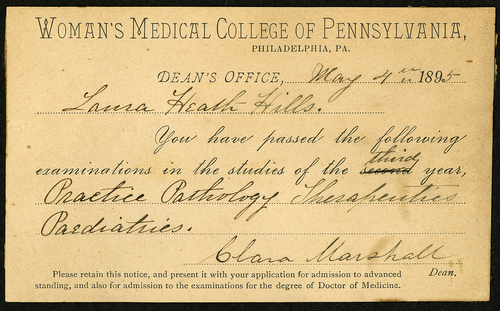 WOMAN'S MEDICAL COLLEGE OF PENNSYLVANIA,
PHILADELPHIA, PA.
DEAN'S OFFICE, May 4th 1895
Laura Heath Hills.
You have passed the following
third
examinations in the studies of the second year,
Practice Pathology Therapeutics
Paediatrics.
Clara Marshall
Dean.
Please retain this notice, and present it with your application for admission to advanced
standing, and also for admission to the examinations for the degree of Doctor of Medicine.